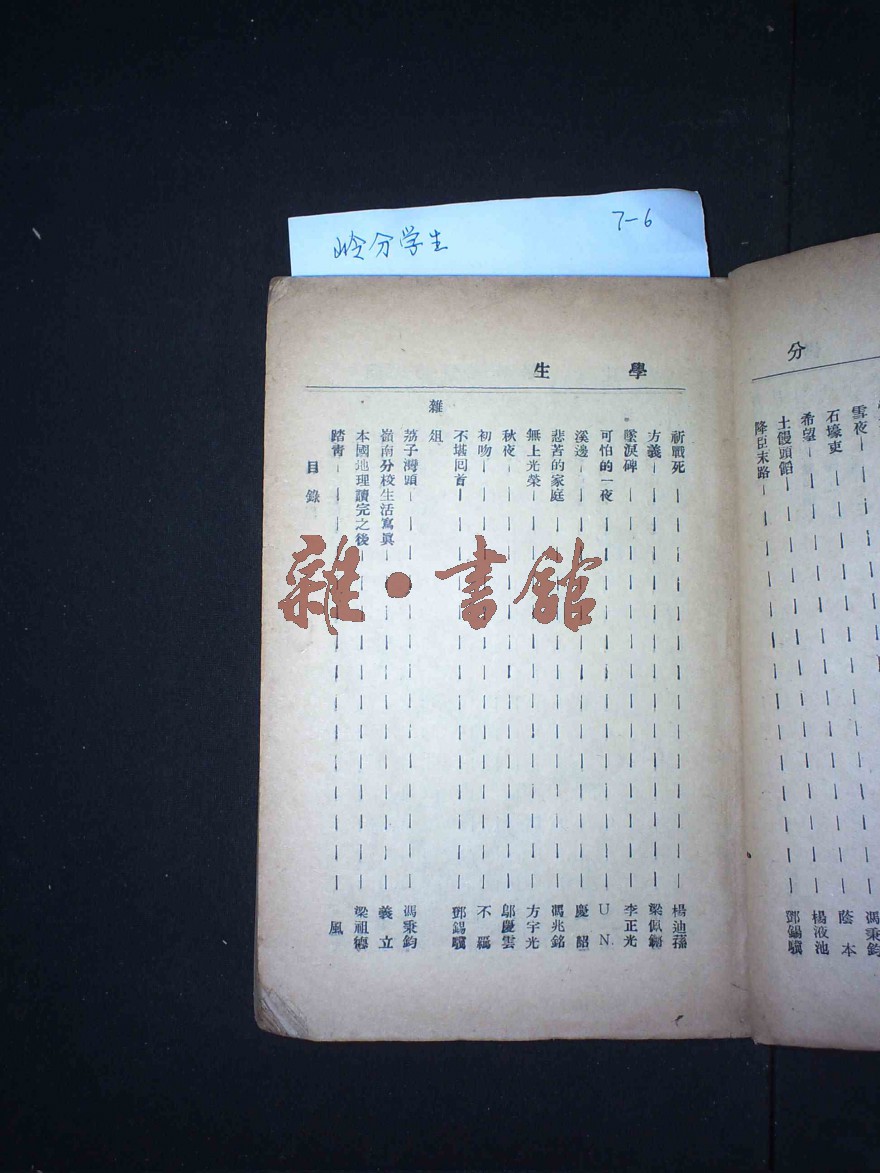 岭分学生
7-6
分
雪夜
石壕吏
希望
土饅頭餡
降臣末路
馮秉鈞
蔭本
楊液池
鄧錫驥
學生
祈戰死 楊迪
方義 梁佩
墜淚碑 李正光
可怕的一夜 UN
溪邊 慶韶
悲苦的家庭 馮兆銘
無上光榮 方宇光
秋夜 鄔慶雲
初吻 不羈
不堪回首 鄧錫驥
雜俎
荔子灣頭 馮秉鈞
嶺南分校生活寫眞 義立
本國地理讀完之後 梁祖德
踏青 風
目錄
雜·書館